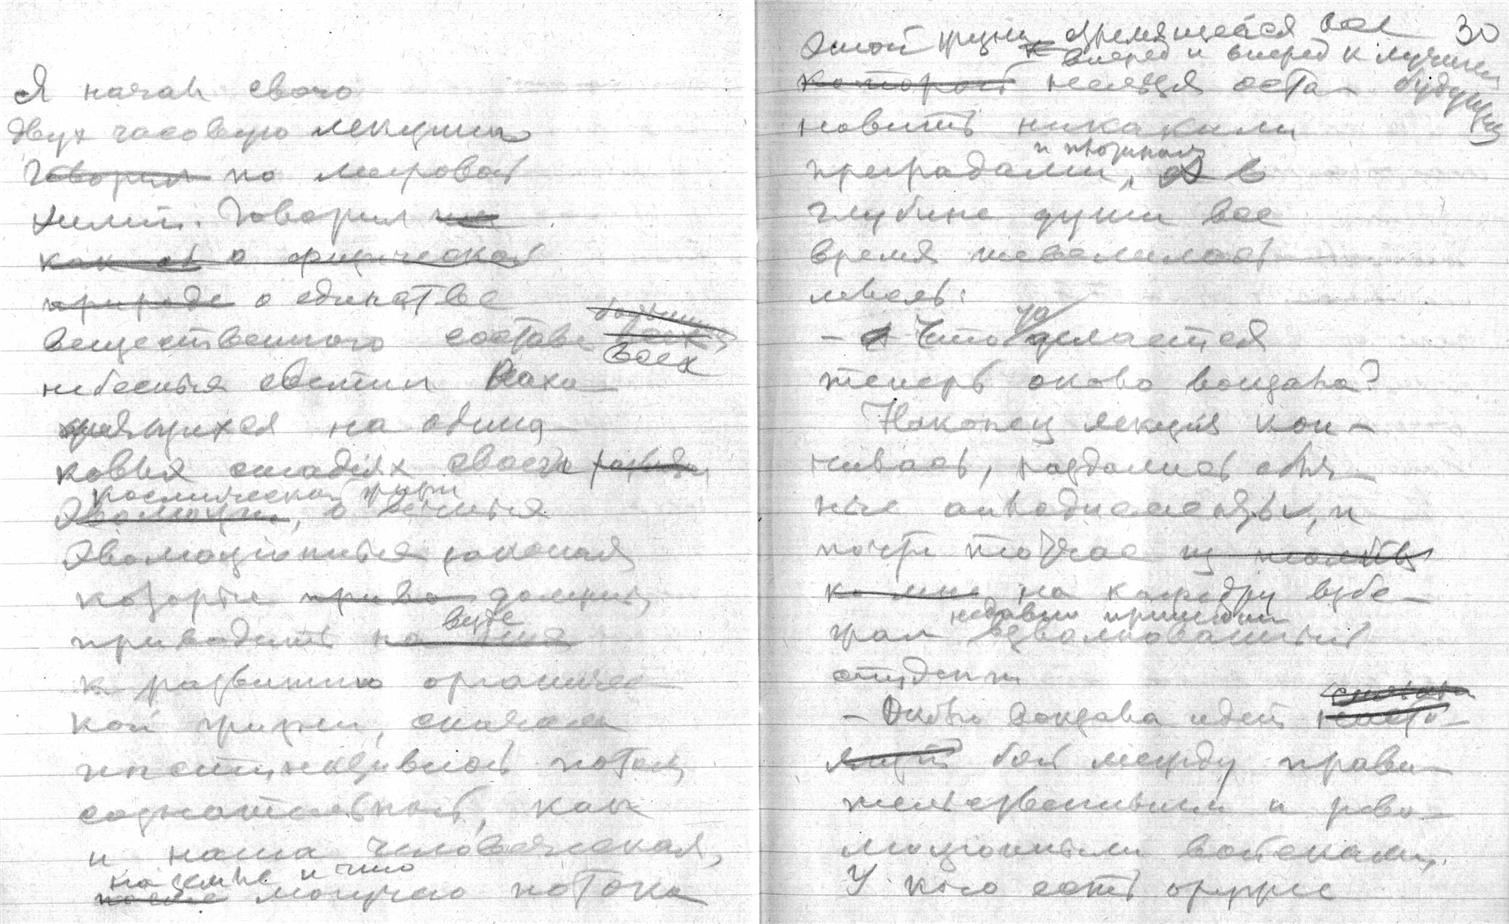 Я начал свою
двух часовую лекцию
говорил по мировой
химии. Говорил
как о физической
природе о единстве
вещественного состава всех
небесных светил нахо
дящихся на одина
ковых стадиях своей
космической жизни
эволюции, о вечных
эволюционных законах
которые должны
приводить везде
к развитию органичес
кой жизни, сначала
инстинктивной потом
сознательной, как
и наша человеческая,
на земле и что
могучего потока
30
этой жизни стремящейся все
вперед и вперед к лучшему
будущему
которой нельзя оста-
новить никакими
и
преградами, а в
глубине души все
время шевелилась
мысль:
- Что делается
теперь около вокзала?
Наконец лекция кон-
чилась, раздались обыч-
ные аплодисменты, и
почти тотчас из
ко мне на кафедру взбе-
недавно пришедший
жал взволнованный
студент
- Около вокзала идет
бой между прави-
тельственными и рево-
люционными войсками,
У кого есть оружие